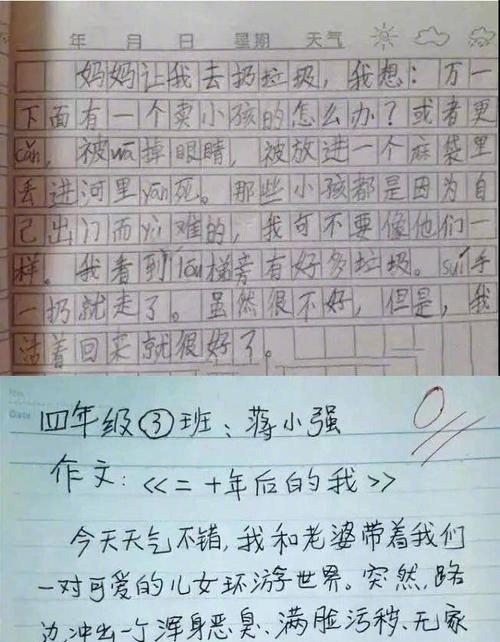 年 月 日 星期 天气
妈妈让我去扔垃圾，我想：万一
下面有一个卖小孩的怎么办？或者更
cǎn，被wā掉眼睛，被放进一个麻袋里
丢进河里yān死。那些小孩都是因为自
己出门而yù难的，我可不要像他们一
样。我看到lóu梯旁有好多垃圾。suí手
一扔就走了。虽然很不好，但是，我
活着回来就很好了。
Date
四年级③班：蒋小强
0
作文：《二十年后的我》
今天天气不错，我和老婆带着我们
一对可爱的儿女环游世界。突然，路
边冲出一个浑身恶臭、满脸污秽、无家